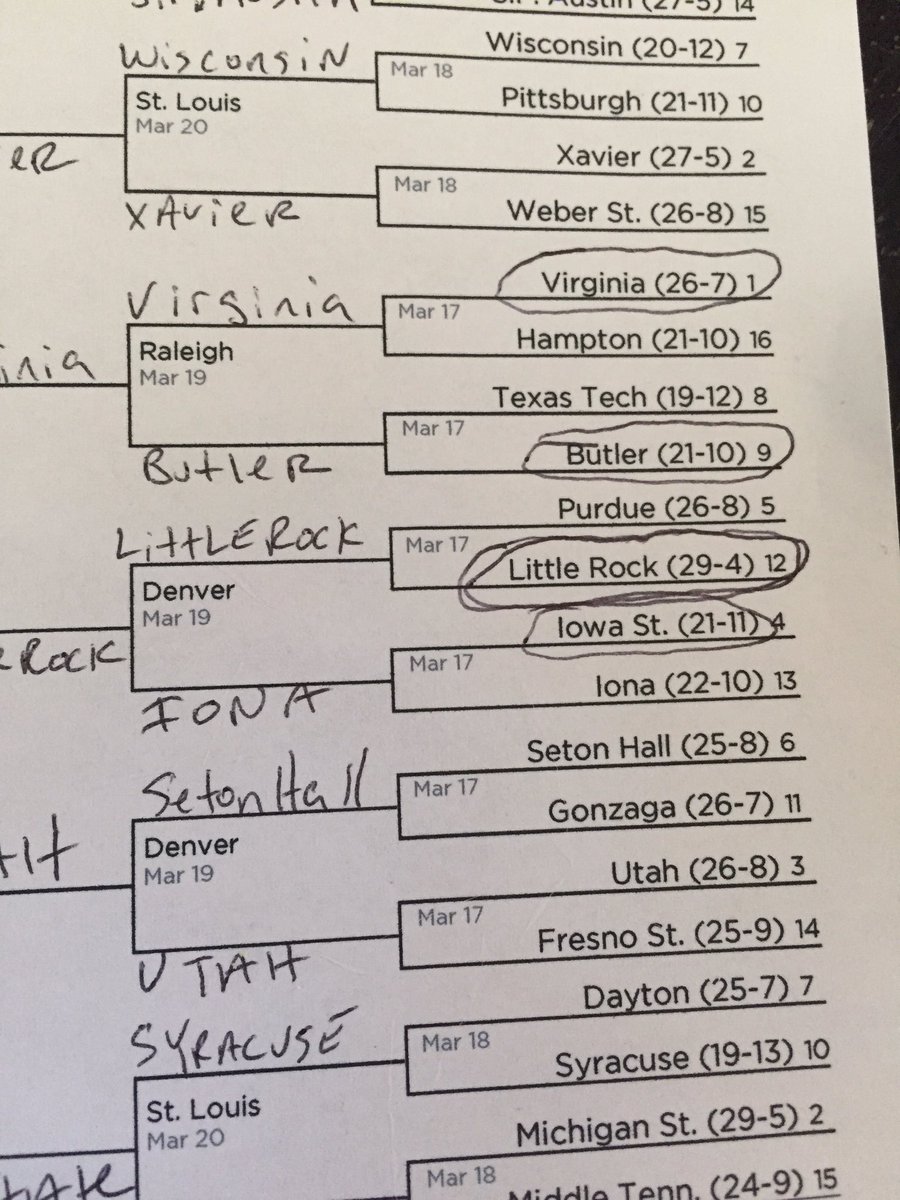 Austin (27-5) 14
Wisconsin
Wisconsin (20-12) 7
Mar 18
St. Louis
Pittsburgh (21-11) 10
Mar 20
ER
Xavier (27-5) 2
Mar 18
XAVIER
Weber St. (26-8) 15
Virginia
Virginia (26-7) 1
Mar 17
Raleigh
Hampton (21-10) 16
inia
Mar 19
Texas Tech (19-12) 8
Mar 17
BUTLER
Butler (21-10) 9
LITTLE ROCK
Purdue (26-8) 5
Mar 17
Denver
Little Rock (29-4) 12
Mar 19
Iowa St. (21-11) 4
E ROCK
Mar 17
IONA
Iona (22-10) 13
Seton Hall
Seton Hall (25-8) 6
Mar 17
Gonzaga (26-7) 11
Denver
AH
Mar 19
Utah (26-8) 3
Mar 17
UTAH
Fresno St. (25-9) 14
SYRACUSE
Dayton (25-7) 7
Mar 18
Syracuse (19-13) 10
St. Louis
Mar 20
Michigan St. (29-5) 2
Mar 18
Middle Tenn. (24-9) 15